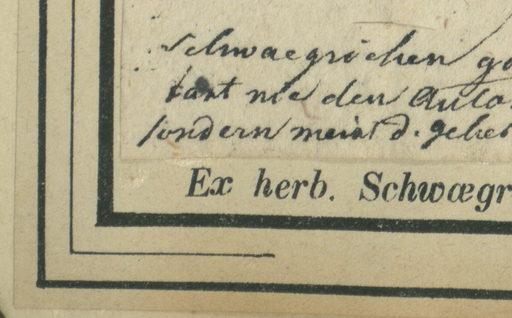 Schwaegrichen
fast nie den Auto
sondern meist d. geber
Ex herb. Schwægr